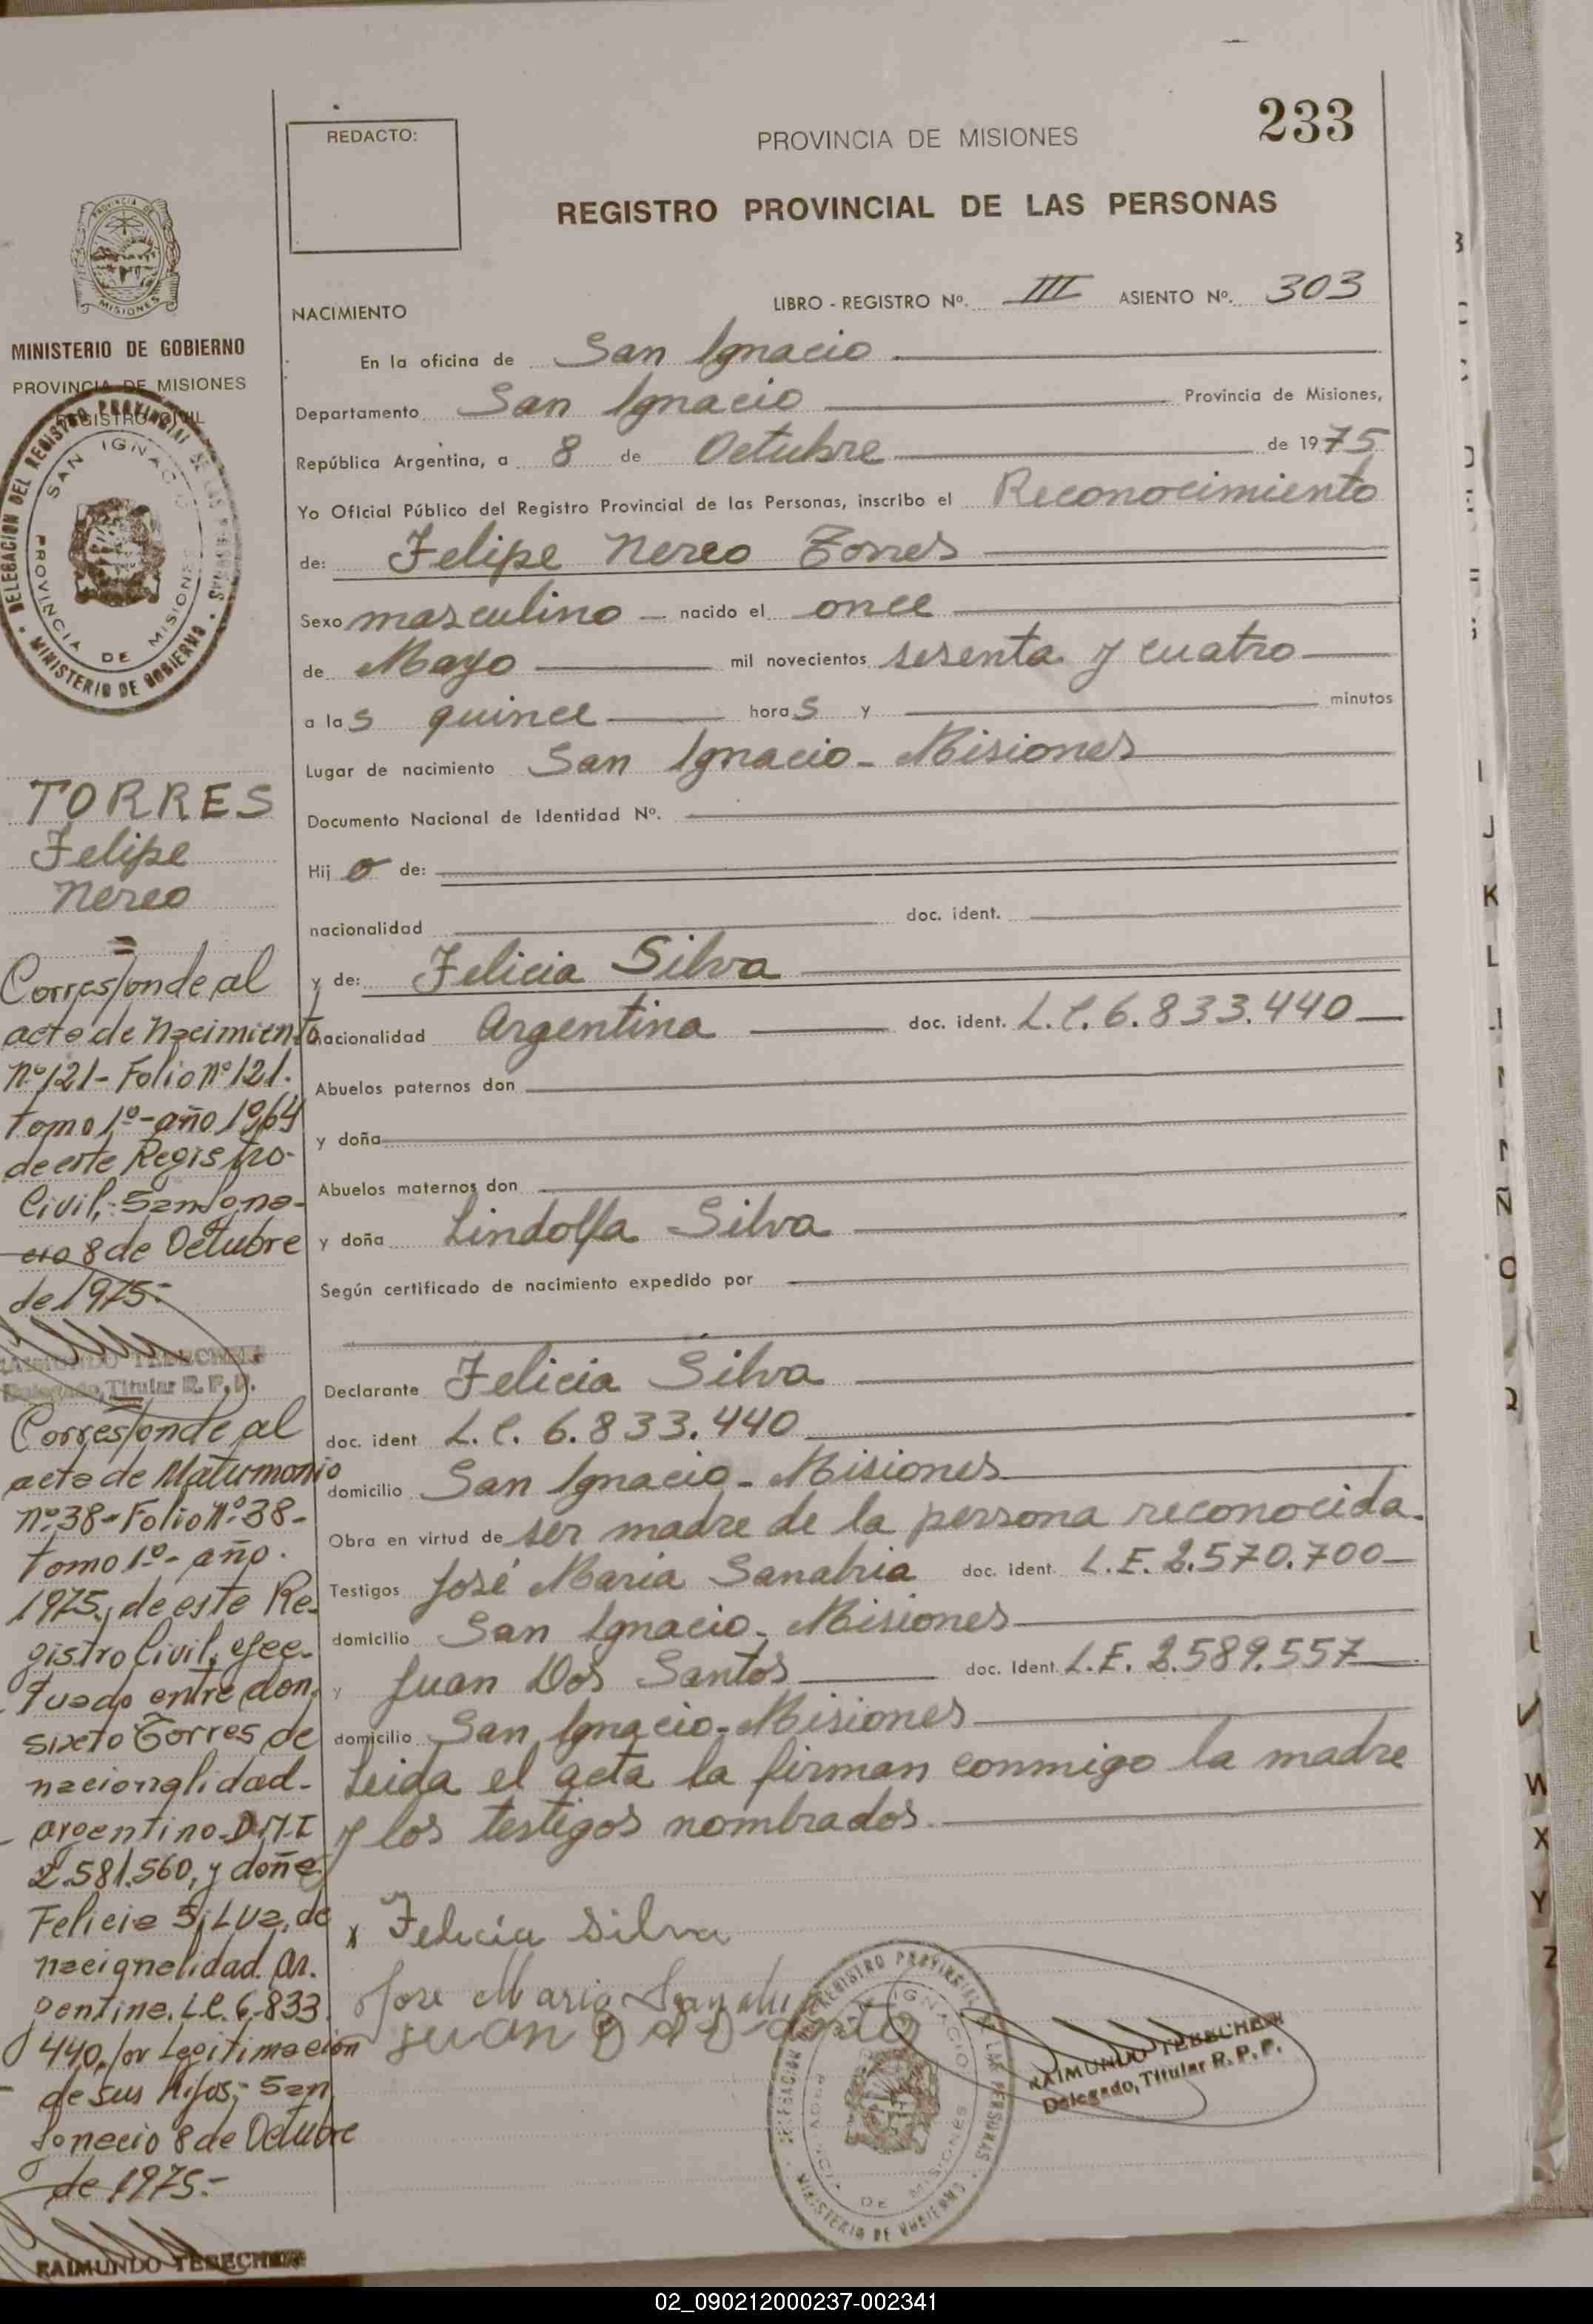 233
REDACTO:
PROVINCIA DE MISIONES
REGISTRO PROVINCIAL DE LAS PERSONAS
NACIMIENTO
LIBRO - REGISTRO Nº. III ASIENTO Nº. 303
En la oficina de San Ignacio
Departamento San Ignacio Provincia de Misiones,
República Argentina, a 8 de Octubre de 1975
Yo Oficial Público del Registro Provincial de las Personas, inscribo el Reconocimiento
de: Felipe Nereo Torres
Sexo masculino nacido el once
de Mayo mil novecientos sesenta y cuatro
a las quince horas y minutos
Lugar de nacimiento San Ignacio - Misiones
Documento Nacional de Identidad Nº.
Hijo de:
nacionalidad doc. ident.
y de: Felicia Silva
nacionalidad Argentina doc. ident. L.C. 6.833.440
Abuelos paternos don
y doña
Abuelos maternos don
y doña Lindolfa Silva
Según certificado de nacimiento expedido por
Declarante Felicia Silva
doc. ident L.C. 6.833.440
domicilio San Ignacio - Misiones
Obra en virtud de ser madre de la persona reconocida.
Testigos José Maria Sanabria doc. ident. L.E. 2.570.700
domicilio San Ignacio - Misiones
y Juan Dos Santos doc. Ident. L.E. 2.589.557
domicilio San Ignacio - Misiones
Leida el acta la firman conmigo la madre
y los testigos nombrados.
x Felicia Silva
Jose Maria
Juan
DELEGACION DEL REGISTRO PROVINCIAL DE LAS PERSONAS
SAN IGNACIO
PROVINCIA DE MISIONES
MINISTERIO DE GOBIERNO
RAIMUNDO TEBECHERI
Delegado, Titular R. P. P.
PROVINCIA DE
MISIONES
MINISTERIO DE GOBIERNO
PROVINCIA DE MISIONES
REGISTRO CIVIL
DELEGACION DEL REGISTRO PROVINCIAL DE LAS PERSONAS
SAN IGNACIO
PROVINCIA DE MISIONES
MINISTERIO DE GOBIERNO
TORRES
Felipe
Nereo
Corresponde al
acta de Nacimiento
Nº 121 - Folio Nº 121.
Tomo 1º - año 1964
de este Registro
Civil.- San Igna-
cio 8 de Octubre
de 1975.-
RAIMUNDO TEBECHERI
Delegado, Titular R. P. P.
Corresponde al
acta de Matrimonio
Nº 38 - Folio Nº 38 -
Tomo 1º - año.
1975, de este Re-
gistro Civil, efec-
tuado entre don
Sixto Torres de
nacionalidad
argentino - D.N.I
2.581.560, y doña
Felicia Silva, de
nacionalidad Ar.
gentina. L.C. 6.833
440, por Legitimación
de sus Hijos; San
Ignacio 8 de Octubre
de 1975.-
RAIMUNDO TEBECHERI
K
L
N
Ñ
O
Q
W
X
Y
Z
02_090212000237-002341